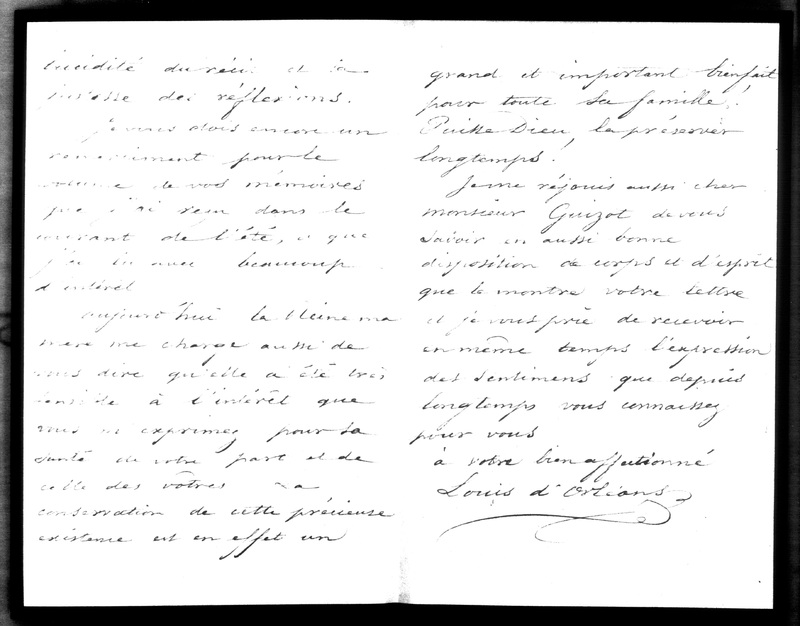 lucidité du récit et la
justesse des réflexions.
Je vous dois encore un
remerciment pour le
volume de vos mémoires
que j'ai reçu dans le
courant de l'été, et que
j'ai lu avec beaucoup
d'intérêt
Aujourd'hui la Reine ma
mère me charge aussi de
vous dire qu'elle a été très
sensible à l'intérêt que
vous m'exprimez pour sa
santé de votre part et de
celle des vôtres La
conservation de cette précieuse
existence est en effet un
grand et important bienfait
pour toute sa famille!
Puisse Dieu la préserver
longtemps!
Je me réjouis aussi cher
monsieur Guizot de vous
savoir en aussi bonne
disposition de corps et d'esprit
que le montre votre lettre
et je vous prie de recevoir
en même temps l'expression
des sentimens que depuis
longtemps vous connaissez
pour vous
à votre bien affectionné
Louis d'Orléans